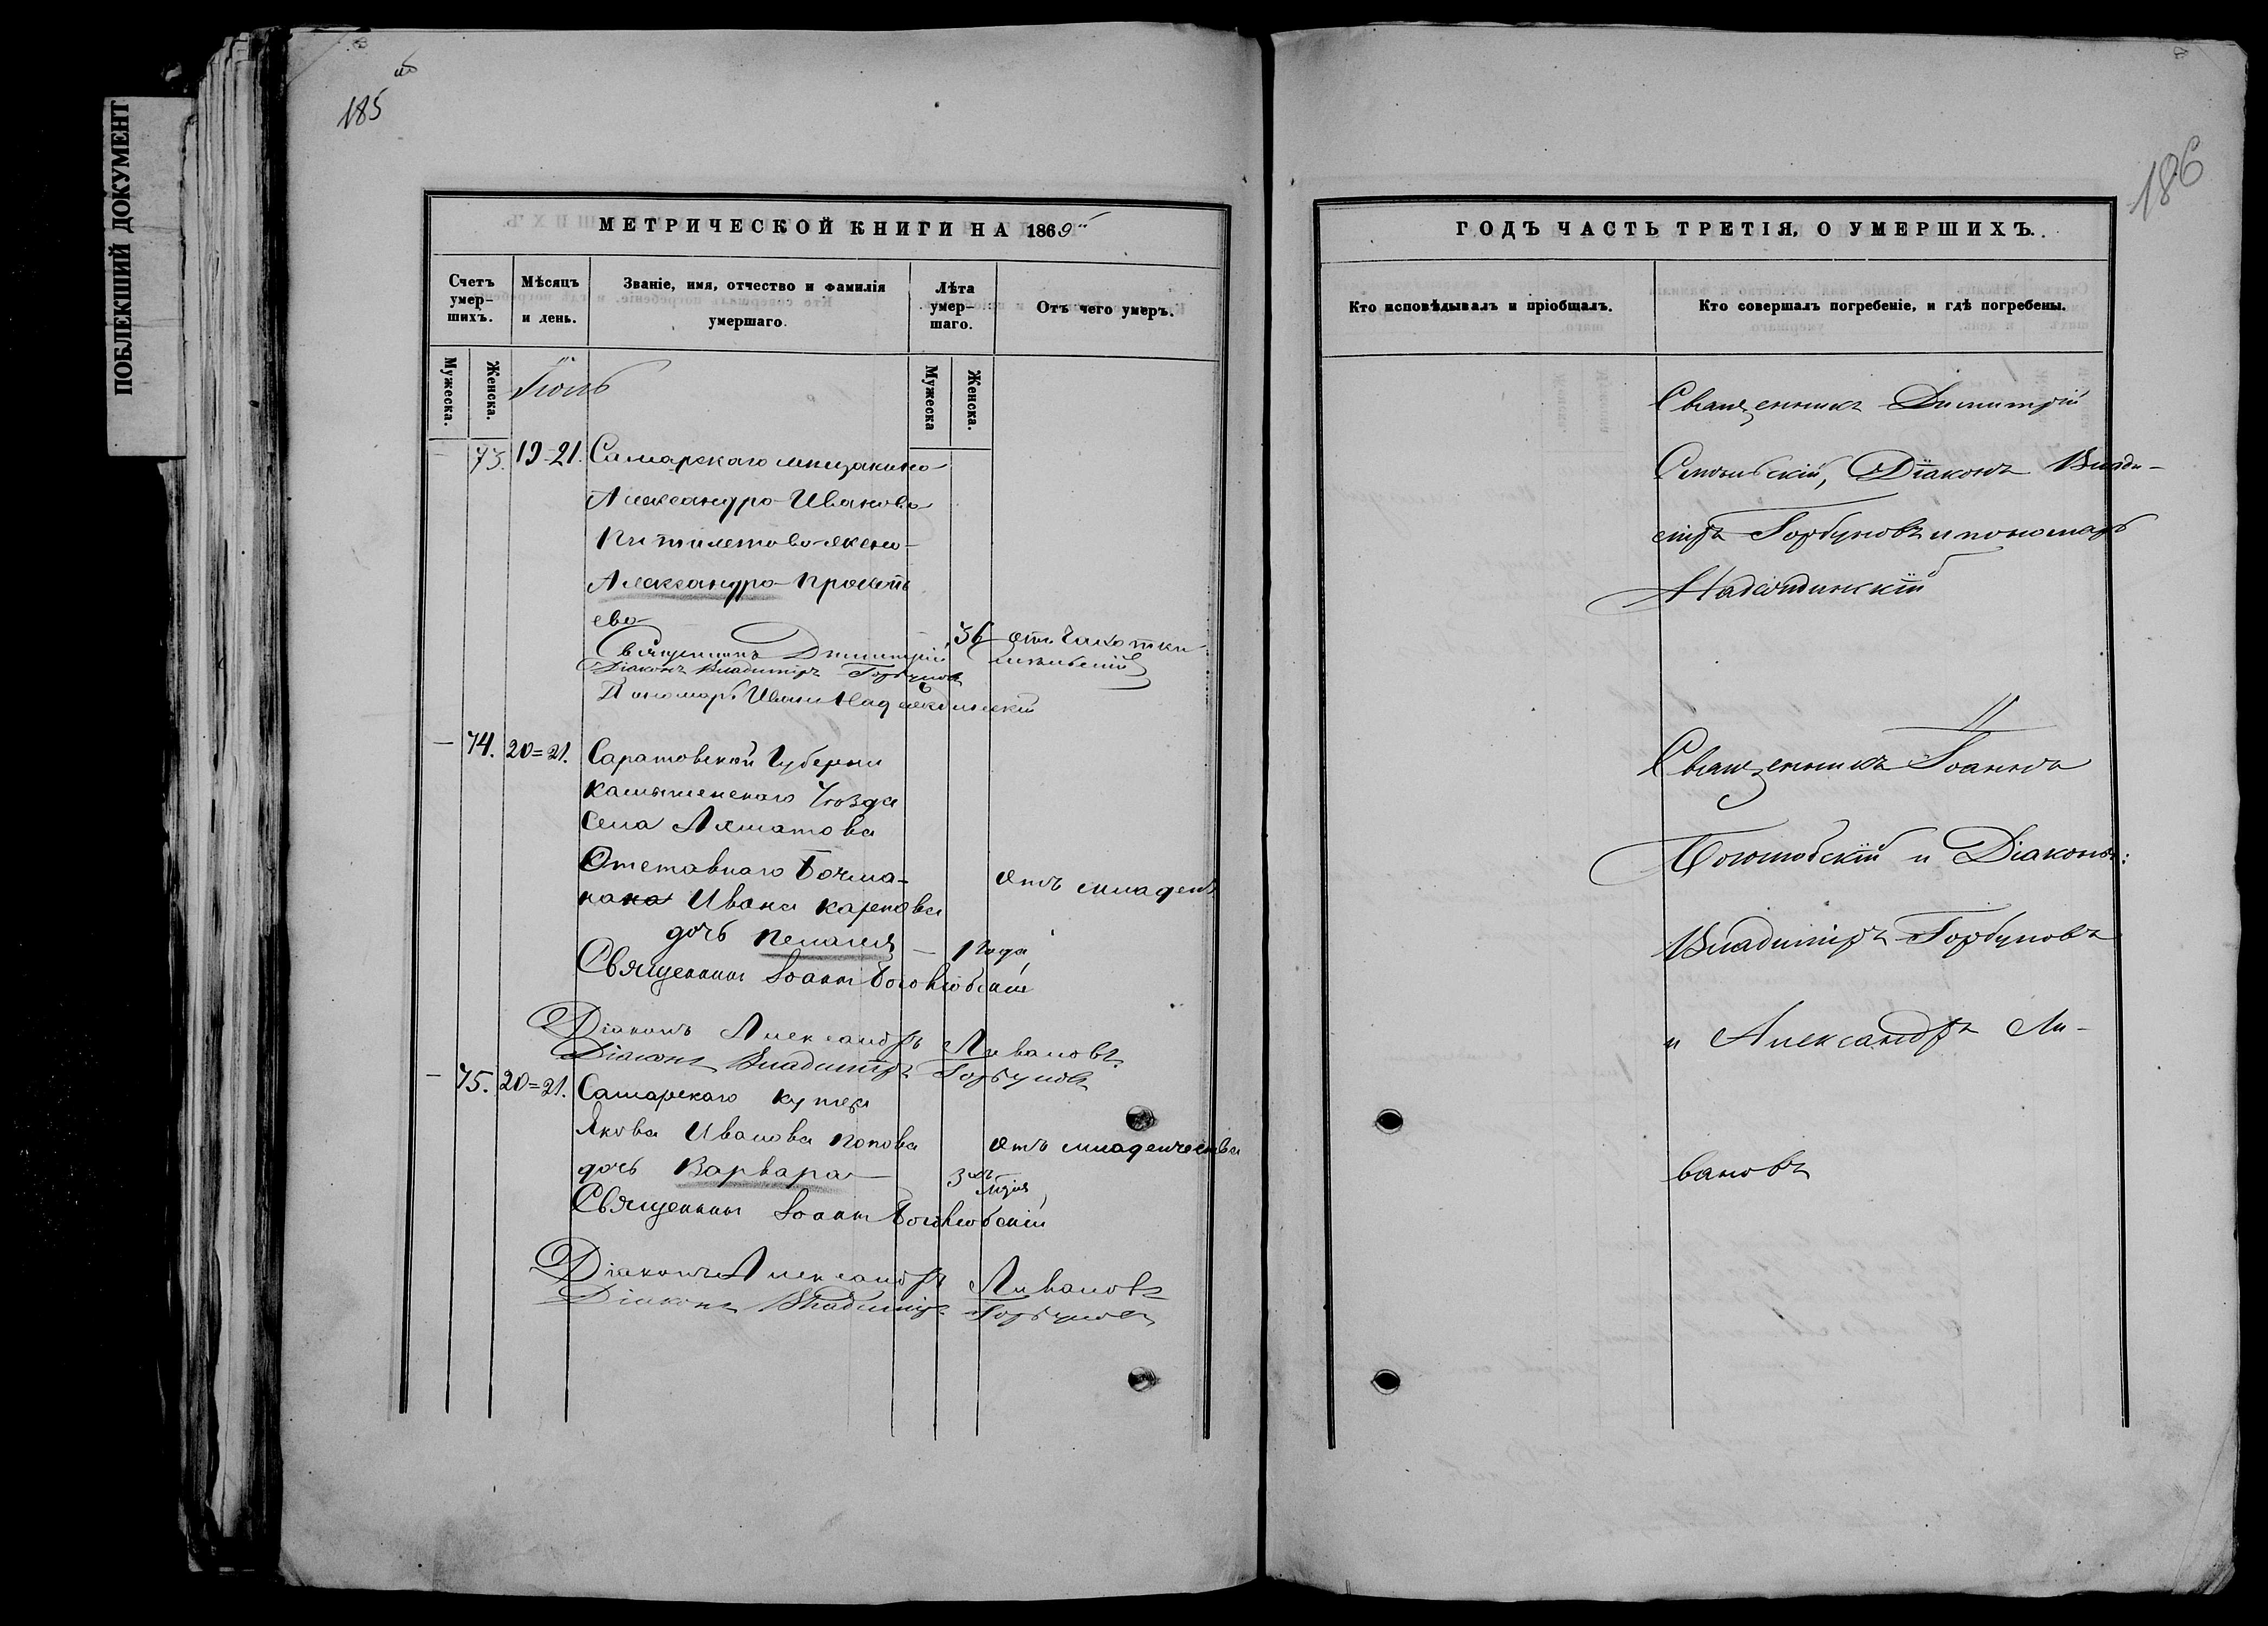 ПОБЛЕКШИЙ ДОКУМЕНТ
185
МЕТРИЧЕСКОЙ КНИГИ НА 1869
Счетъ умер-шихъ.
Мѣсяцъ и день.
Званіе, имя, отчество и фамилія умершаго.
Лѣта умер-шаго.
Отъ чего умеръ.
Мужеска.
Женска.
Мужеска
Женска.
Іюль
73. 19-21. Самарскаго мещанина
Александра Иванова
жена
Александра
ева
36 отъ чахотки
Священникъ Димитрій
Діаконъ Владиміръ Горбуновъ
Пономарь Иванъ Надеждинскій
— 74. 20=21. Саратовской Губерніи
Камышенскаго Уѣзда
села Ахматова
Отставнаго Бочма-
на Ивана Карпова
дочь Пелагея — 1 года
отъ младен
Священникъ Іоаннъ Боголюбскій
Діаконъ Александръ Ливановъ
Діаконъ Владиміръ Горбуновъ
— 75. 20=21. Самарскаго купца
Якова Иванова Попова
отъ младенчества
дочь Варвара — 3хъ мѣся
Священникъ Іоаннъ Боголюбскій
Діаконъ Александръ Ливановъ
Діаконъ Владиміръ Горбуновъ
186
ГОДЪ ЧАСТЬ ТРЕТІЯ, О УМЕРШИХЪ.
Кто исповѣдывалъ и пріобщалъ.
Кто совершалъ погребеніе, и гдѣ погребены.
Священникъ Димитрій
Діаконъ Влади-
міръ Горбуновъ и пономарь
Надеждинскій
Священникъ Іоаннъ
Боголюбскій и Діаконы:
Владиміръ Горбуновъ
и Александръ Ли-
вановъ